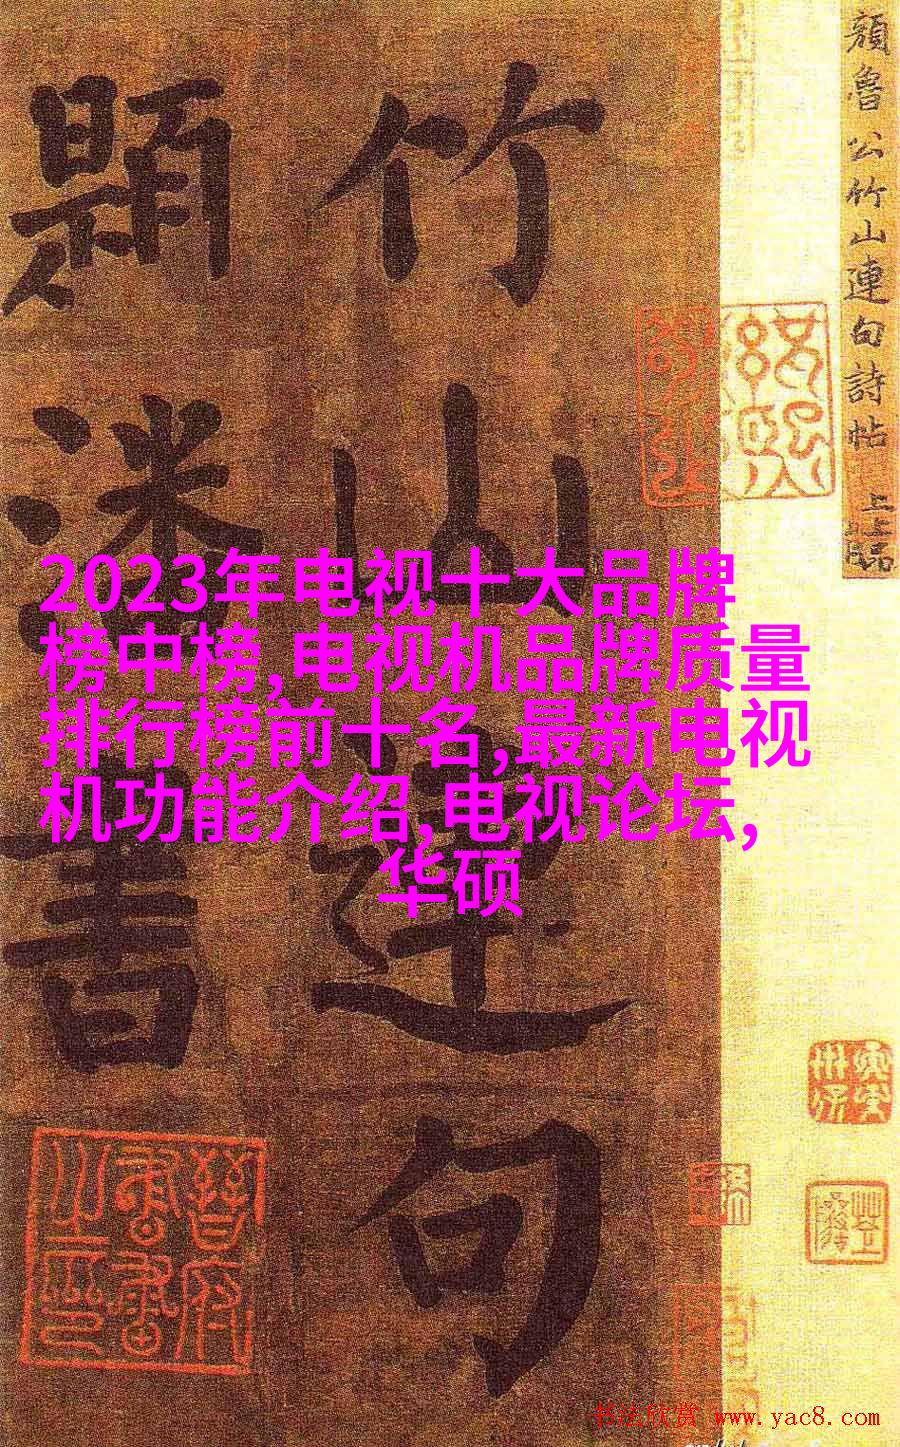 2023年电视十大品牌
榜中榜,电视机品牌质量
排行榜前十名,最新电视
机功能介绍,电视论坛,
华硕
顔魯公竹山連句詩帖 上上品
竹山連句
題潘書
书法欣赏 www.yac8.com